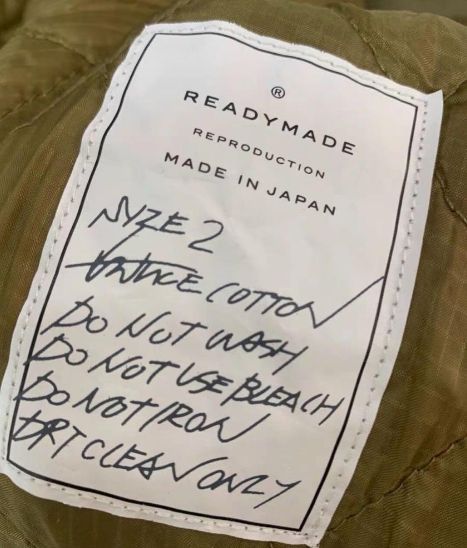 ®
READYMADE
REPRODUCTION
MADE IN JAPAN
SYZE 2
COTTON
DO NOT WASH
DO NOT USE BLEACH
DO NOT IRON
DRY CLEAN ONLY